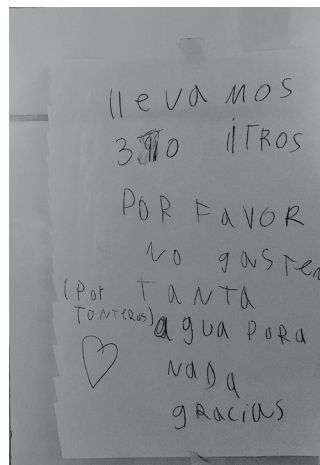 llevamos
310 litros
POR FavOR
NO gasten
(Por TANTA
TONTEROS) agua PORA
NaDa
gRacias